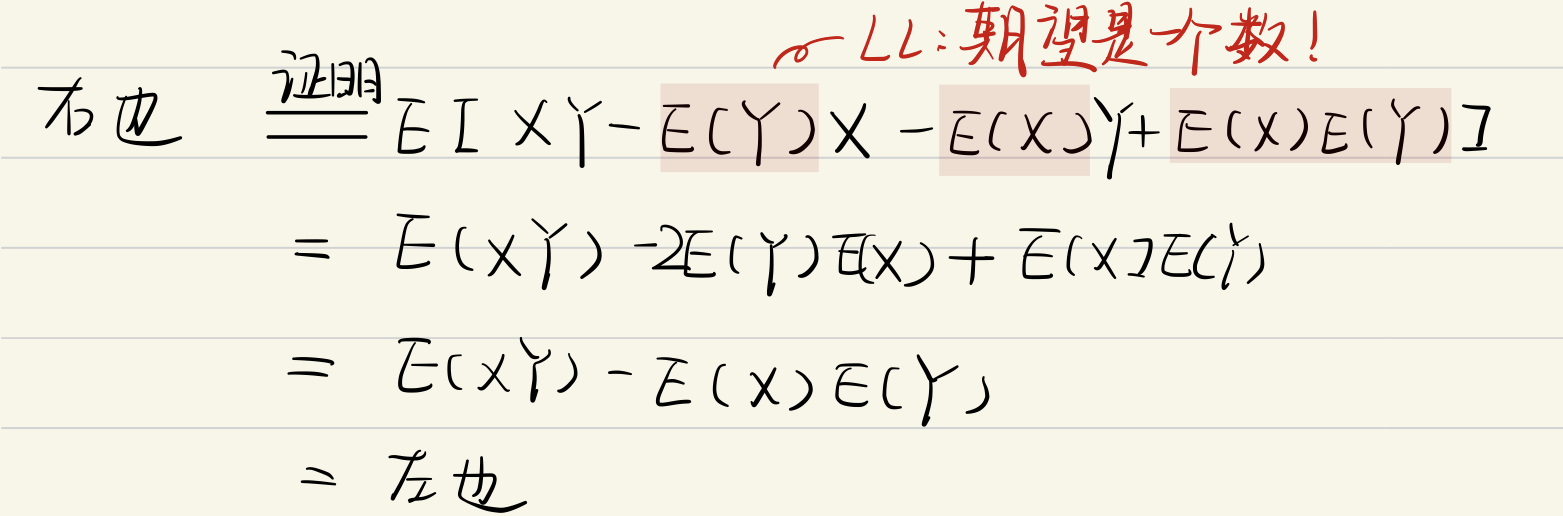 LL:期望是一个数!
右边 证明 = E[XY-E(Y)X-E(X)Y+E(X)E(Y)]
= E(XY)-2E(Y)E(X)+E(X)E(Y)
= E(XY)-E(X)E(Y)
= 左边